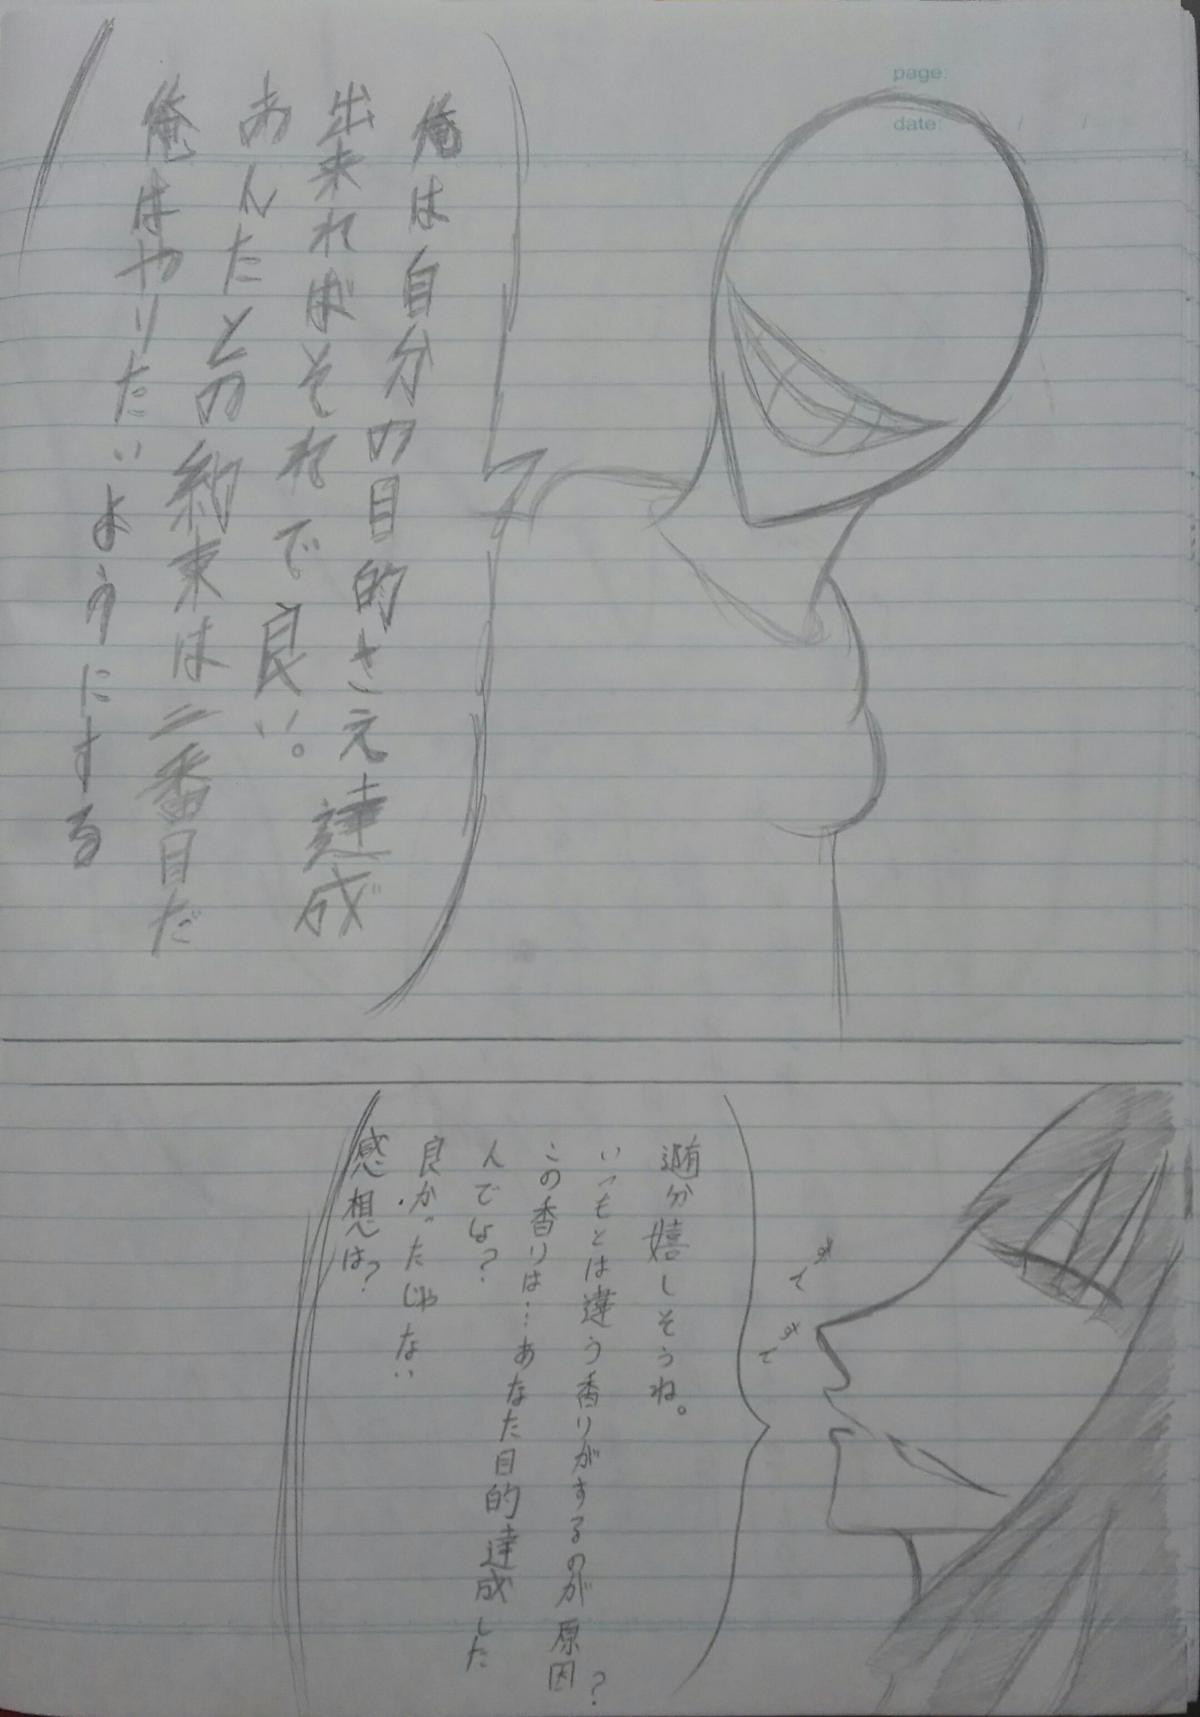 page:
date:
俺は自分の目的さえ達成
出来ればそれで良い。
あんたとの約束は二番目だ
俺はやりたいようにする
随分嬉しそうね。
いつもとは違う香りがするのが原因?
この香りは…あなた目的達成した
んでしょ?
良かったじゃない
感想は?
すて
すて